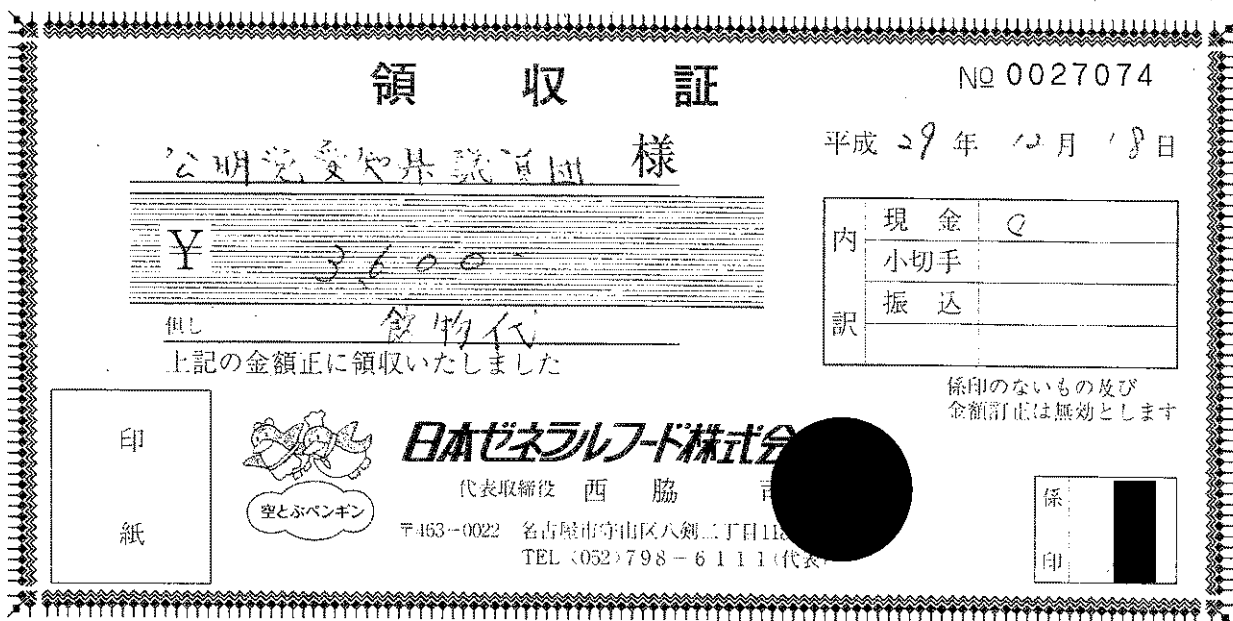 領収証
№ 0027074
平成 29 年 12 月 18 日
公明党愛知県議員団 様
¥ 3,600-
但し 飲物代
上記の金額正に領収いたしました
内訳
現金
小切手
振込
係印のないもの及び
金額訂正は無効とします
印紙
空とぶペンギン
日本ゼネラルフード株式会
代表取締役 西脇 司
〒463-0022 名古屋市守山区八剣二丁目118
TEL (052) 798-6111 (代表)
係印